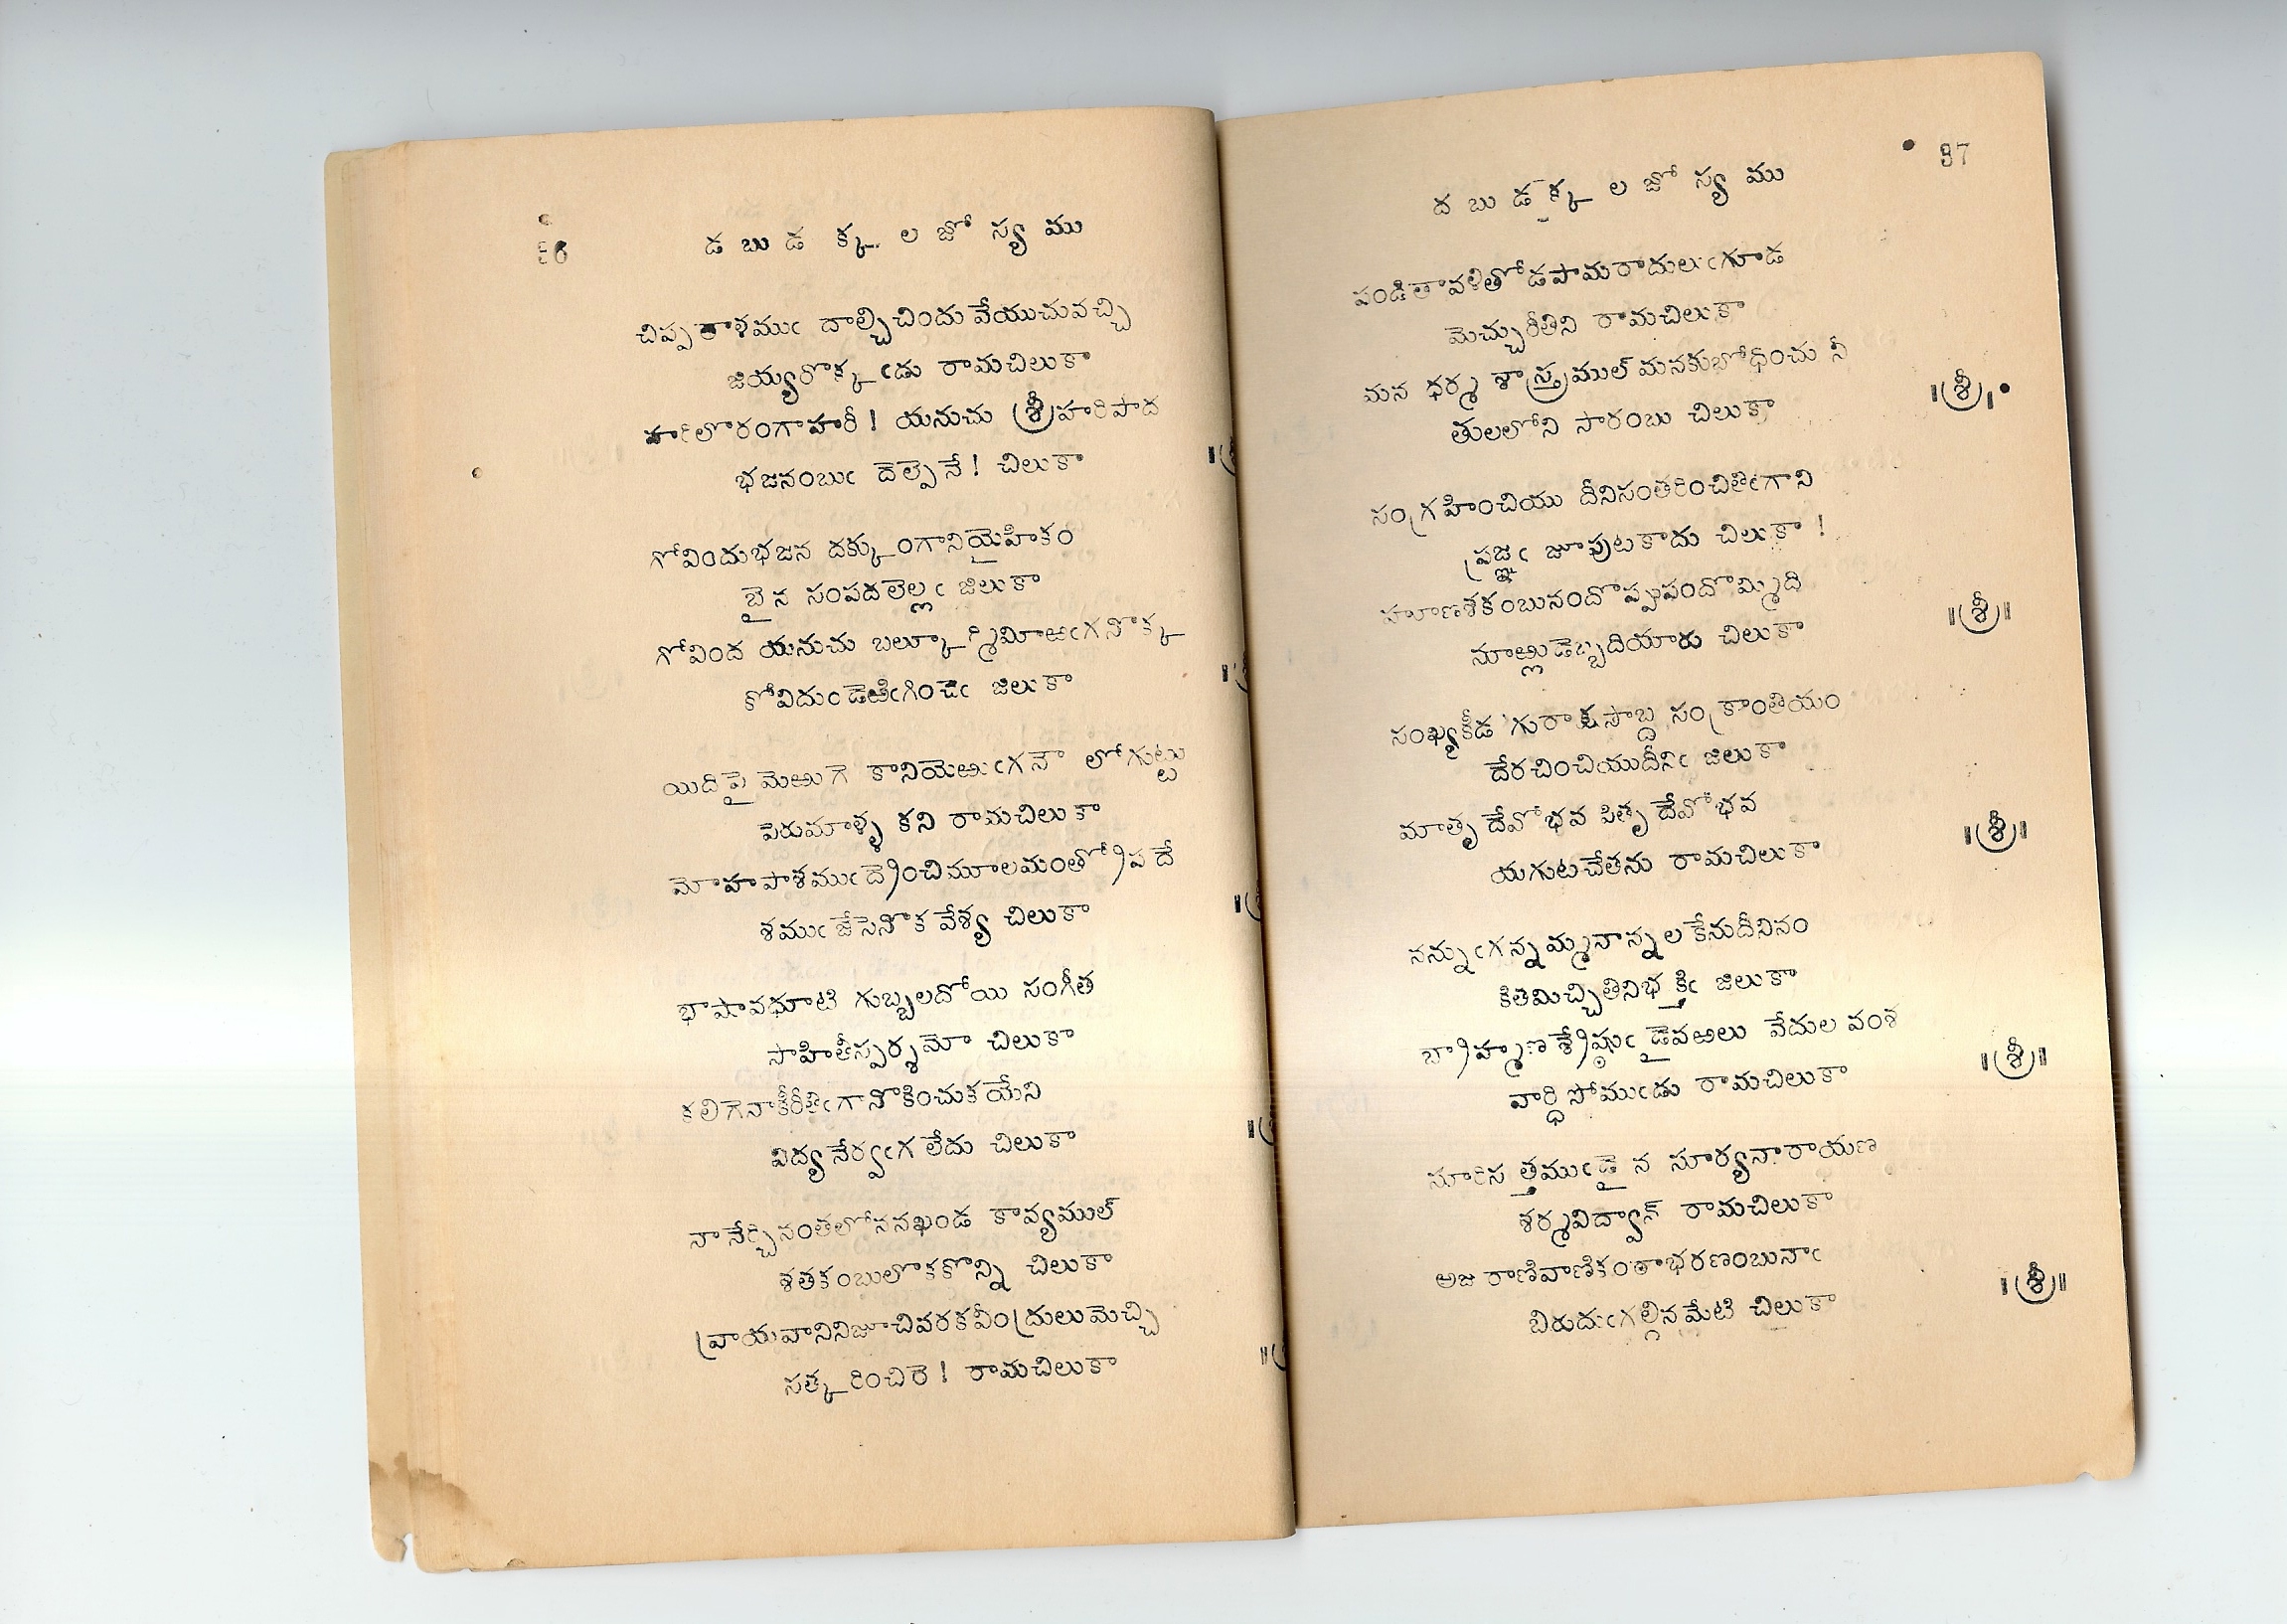 డ బు డ క్క ల జో స్య ము
చిప్పతాళముఁ దాల్చిచిందు వేయుచువచ్చి
జియ్యరొక్కఁడు రామచిలుకా
హరిలొరంగాహరీ ! యనుచు శ్రీహరిపాద
భజనంబుఁ దెల్పెనే ! చిలుకా
గోవిందుభజన దక్కుంగానియైహికం
బైన సంపదలెల్లఁ జిలుకా
గోవింద యనుచు బల్కూర్మిమీఱఁగనొక్క
కోవిదుండెఱిఁగించెఁ జిలుకా
యిదిపై మెఱుగె కానియెఱుఁగనా లోగుట్టు
పెరుమాళ్ళ కని రామచిలుకా
మోహపాశముఁద్రెంచిమూలమంత్రోపదే
శముఁజేసెనొక వేశ్య చిలుకా
భాషావధూటి గుబ్బలదోయి సంగీత
సాహితీస్పర్శమో చిలుకా
కలిగెనాకీరీతిఁగానొకించుకయేని
విద్యనేర్వఁగలేదు చిలుకా
నానేర్చినంతలోననఖండ కావ్యముల్
శతకంబులొకకొన్ని చిలుకా
వ్రాయవానినిజూచివరకవీంద్రులుమెచ్చి
సత్కరించిరె ! రామచిలుకా
37
ద బు డ క్క ల జో స్య ము
పండితావళితోడపామరాదులుఁగూడ
మెచ్చురీతిని రామచిలుకా
మన ధర్మ శాస్త్రముల్ మనకుబోధించు నీ
తులలోని సారంబు చిలుకా ॥శ్రీ॥
సంగ్రహించియు దీనిసంతరించితిఁగాని
ప్రజ్ఞఁ జూపుటకాదు చిలుకా !
హూణశకంబునందొప్పుపందొమ్మిది
నూఱ్లుడెబ్బదియారు చిలుకా ॥శ్రీ॥
సంఖ్యకీడగురాక్షసాబ్ద సంక్రాంతియం
దేరచించియుదీనిఁ జిలుకా
మాతృదేవోభవ పితృదేవోభవ
యగుటచేతను రామచిలుకా ॥శ్రీ॥
నన్నుఁగన్నమ్మనాన్నలకేనుదీనినం
కితమిచ్చితినిభక్తిఁ జిలుకా
బ్రాహ్మణశ్రేష్ఠుఁడైవఱలు వేదుల వంశ
వార్ధిసోముఁడు రామచిలుకా ॥శ్రీ॥
సూరిసత్తముఁడైన సూర్యనారాయణ
శర్మవిద్వాన్ రామచిలుకా
అజరాణివాణికంఠాభరణంబునాఁ
బిరుదుఁగల్గినమేటి చిలుకా ॥శ్రీ॥